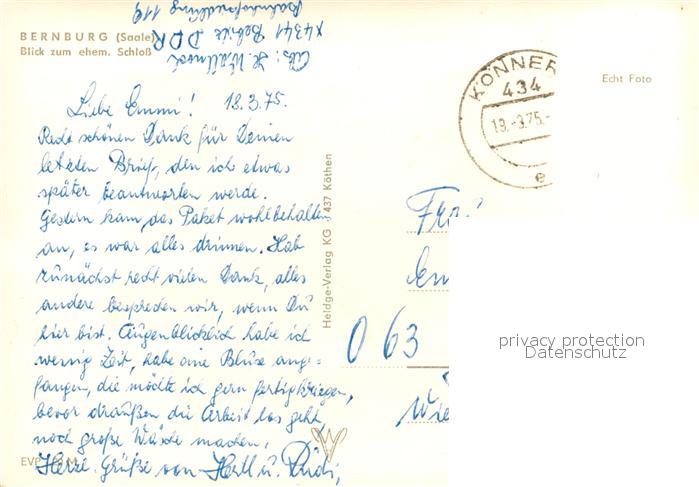 BERNBURG (Saale)
Blick zum ehem. Schloß
Abs: H. Wallmod
X4341 Bebitz DDR
Bahnhofsiedlung 119
Liebe Emmi! 18.3.75.
Recht schönen Dank für Deinen
letzten Brief, den ich etwas
später beantworten werde.
Gestern kam das Paket wohlbehalten
an, es war alles drinnen. Hab
zunächst recht vielen Dank, alles
andere besprechen wir, wenn Du
hier bist. Augenblicklich habe ich
wenig Zeit, habe eine Bluse ange=
fangen, die möchte ich gern fertigkriegen,
bevor draußen die Arbeit los geht,
noch große Wäsche machen.
Herzl. Grüße von Hell u. Rudi,
EVP
Heldge-Verlag KG 437 Köthen
KÖNNER
434
19.-3.75.-
e
Echt Foto
Fr
Em
O 63
Wie
privacy protection
Datenschutz